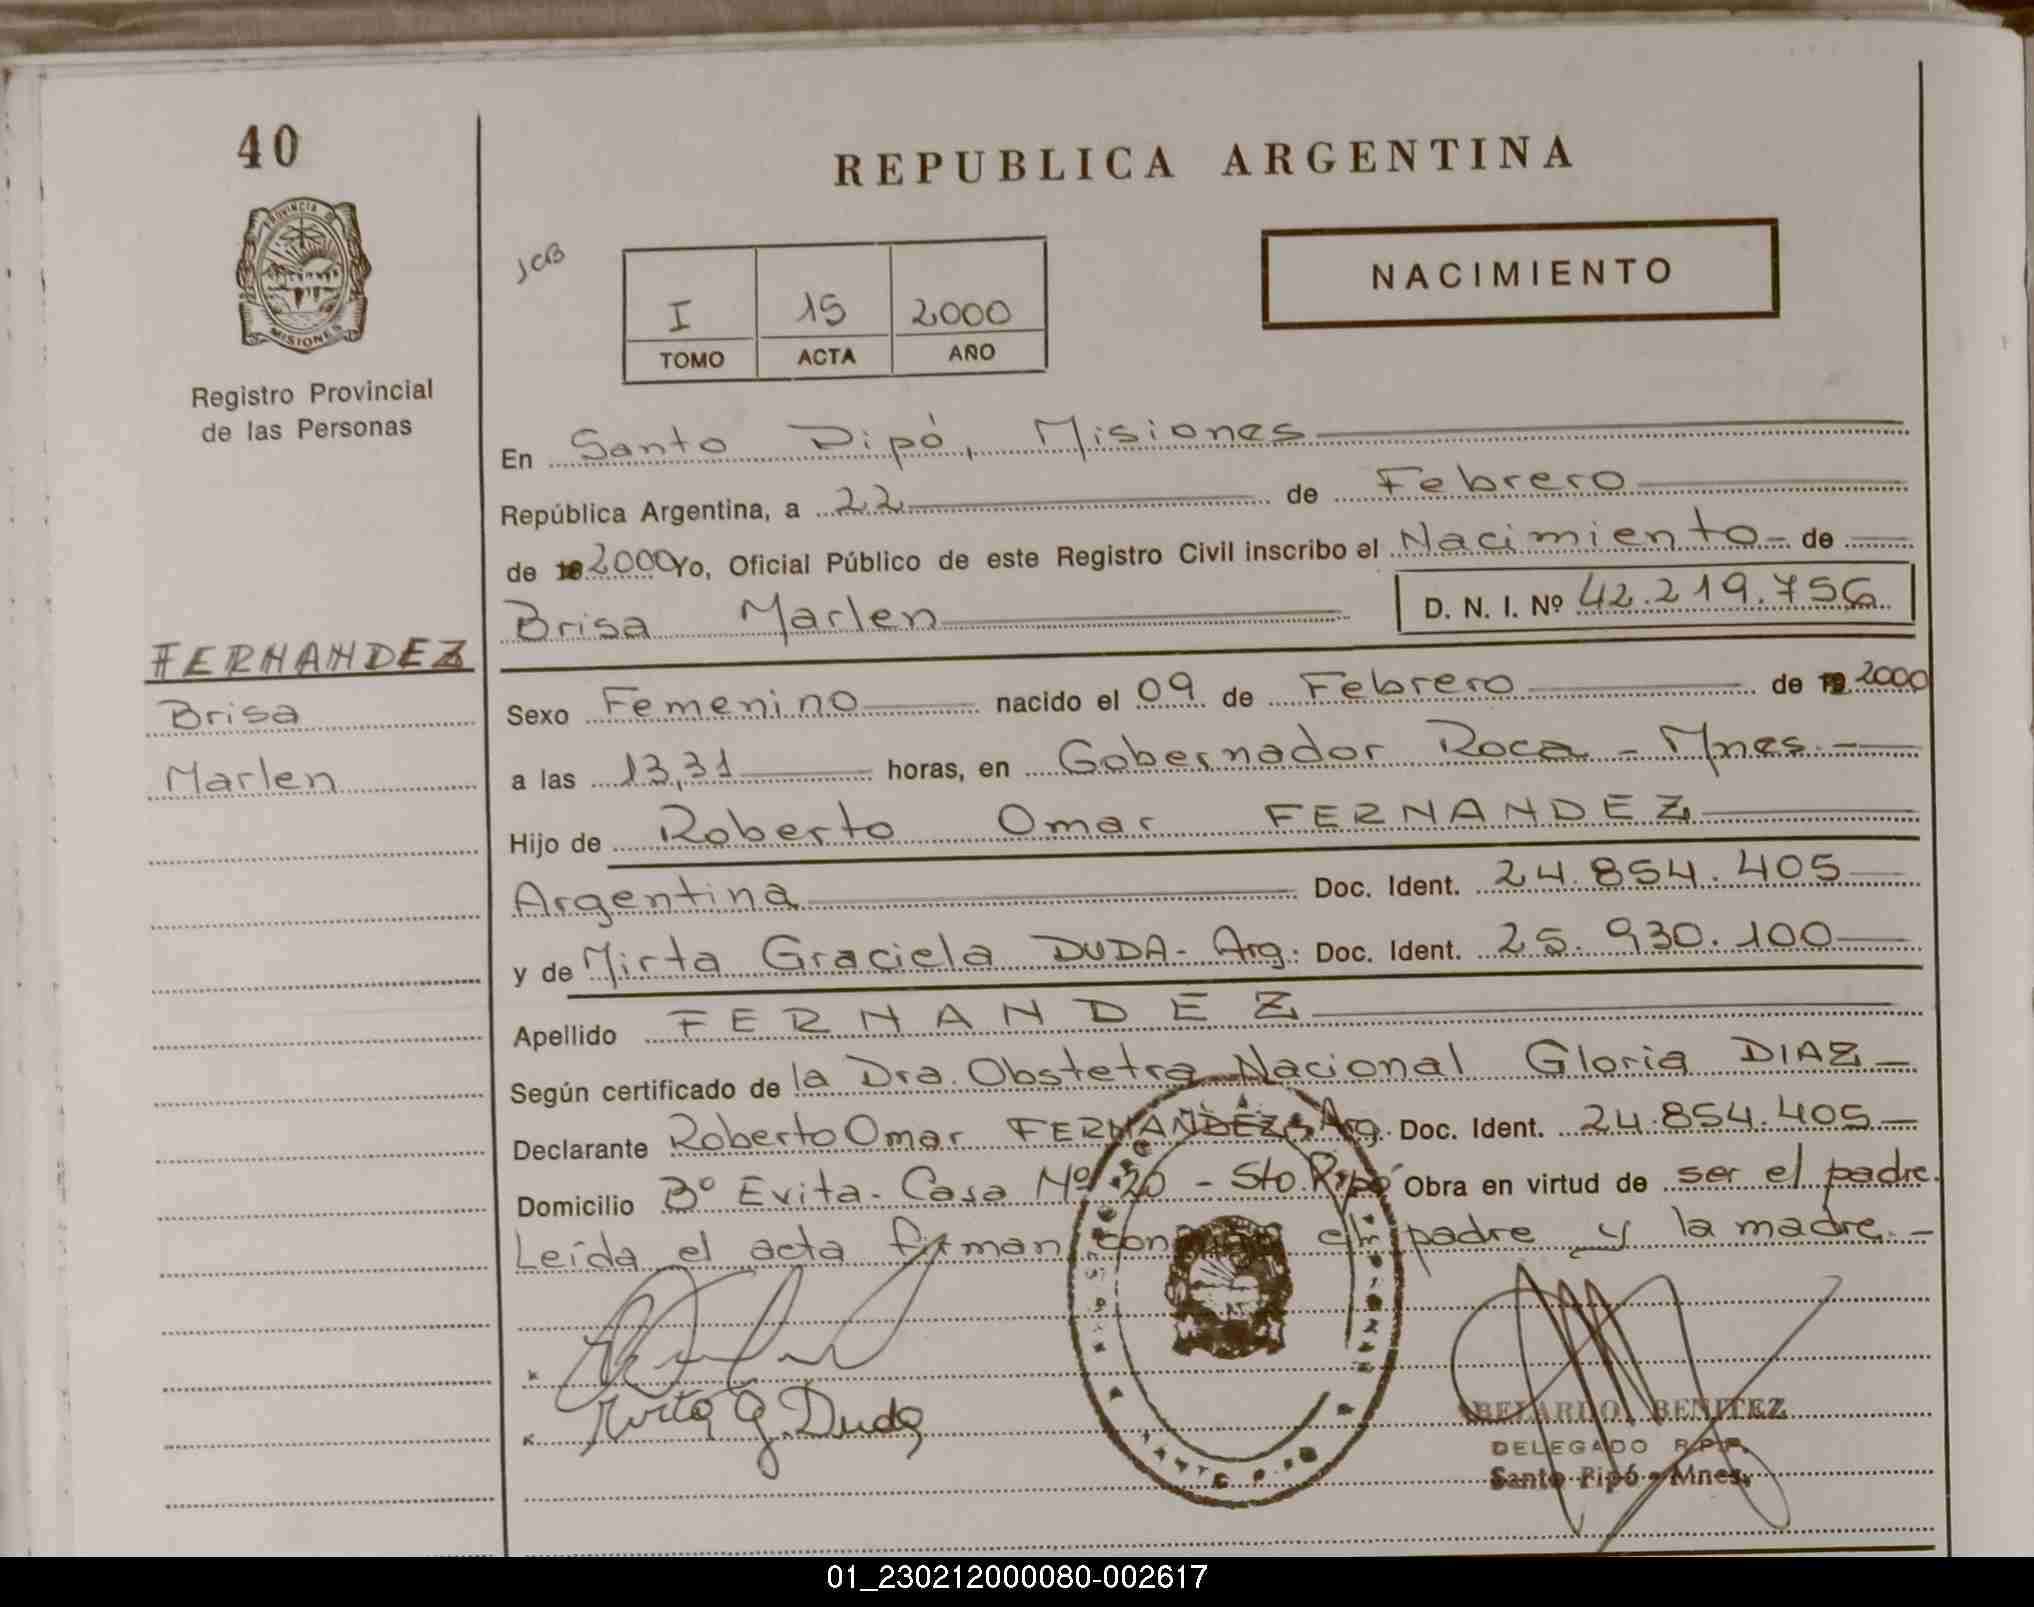 40
REPUBLICA ARGENTINA
PROVINCIA DE
MISIONES
JCB
NACIMIENTO
I 15 2000
TOMO ACTA AÑO
Registro Provincial
de las Personas
En Santo Pipó, Misiones
República Argentina, a 22 de Febrero
de 19 2000 Yo, Oficial Público de este Registro Civil inscribo el Nacimiento - de
Brisa Marlen D. N. I. Nº 42.219.756
FERNANDEZ
Brisa
Marlen
Sexo Femenino nacido el 09 de Febrero de 19 2000
a las 13,31 horas, en Gobernador Roca - Mnes. -
Hijo de Roberto Omar FERNANDEZ
Argentina Doc. Ident. 24.854.405
y de Mirta Graciela DUDA - Arg. Doc. Ident. 25.930.100
Apellido FERNANDEZ
Según certificado de la Dra. Obstetra Nacional Gloria DIAZ -
Declarante Roberto Omar FERNANDEZ - Arg. Doc. Ident. 24.854.405 -
Domicilio Bº Evita - Casa Nº 20 - Sto. Pipó Obra en virtud de ser el padre.
Leída el acta firman conmigo el padre y la madre. -
x
x Mirta G. Duda
ABELARDO BENITEZ
DELEGADO R.P.P.
Santo Pipó - Mnes.
01_230212000080-002617